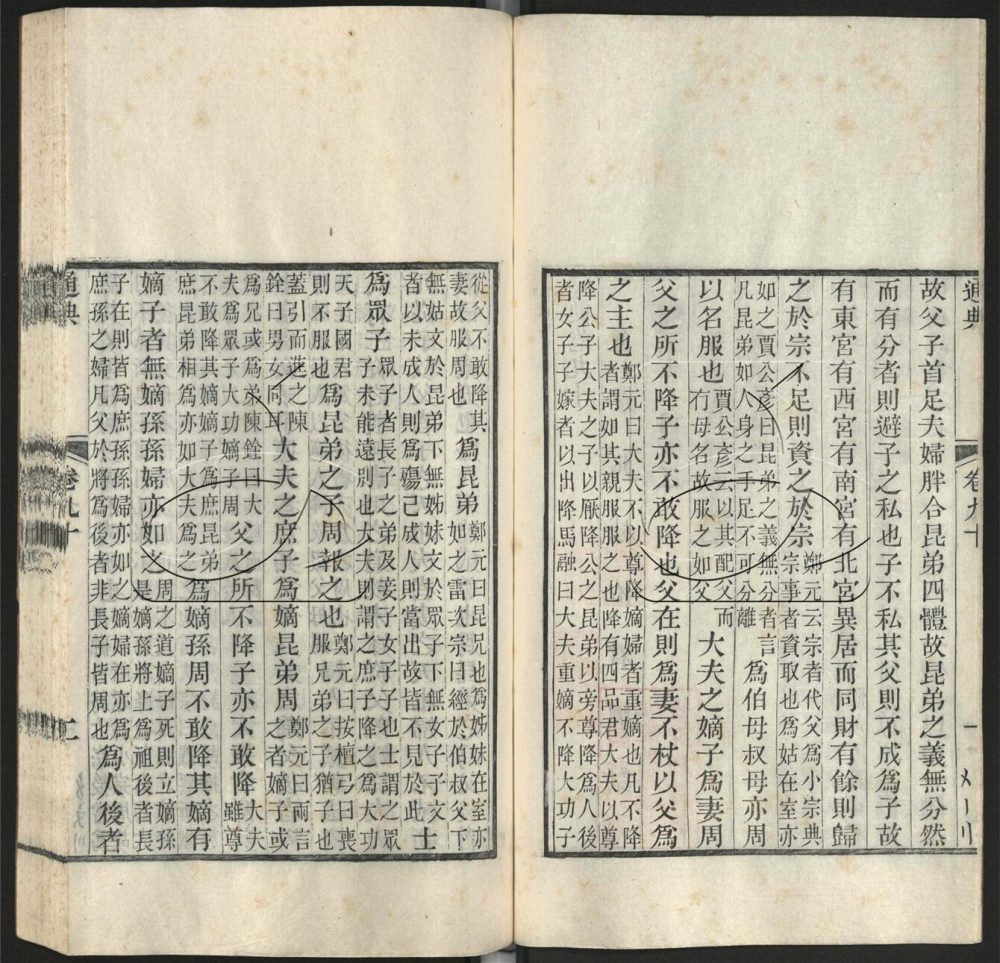 通典
卷九十
一
故父子首足夫婦胖合昆弟四體故昆弟之義無分然
而有分者則避子之私也子不私其父則不成爲子故
有東宮有西宮有南宮有北宮異居而同財有餘則歸
之於宗不足則資之於宗
鄭元云宗者代父爲小宗典
宗事者資取也爲姑在室亦
如之賈公彥曰昆弟之義無分者言
凡昆弟如人身之手足不可分離
爲伯母叔母亦周
以名服也
賈公彥云以其配父而
有母名故服之如父
大夫之嫡子爲妻周
父之所不降子亦不敢降也父在則爲妻不杖以父爲
之主也
鄭元曰大夫不以尊降嫡婦者重嫡也凡不降
者謂如其親服服之也降有四品君大夫以尊
降公子大夫之子以厭降公之昆弟以旁尊降爲人後
者女子子嫁者以出降馬融曰大夫重嫡不降大功子
從父不敢降其
妻故服周也
爲昆弟
鄭元曰昆兄也爲姊妹在室亦
如之雷次宗曰經於伯叔父下
無姑文於昆弟下無姊妹文於眾子下無女子子文
者以未成人則爲殤已成人則當出故皆不見於此
士
爲眾子
眾子者長子之弟及妾子女子子也士謂之眾
子未能遠別也大夫則謂之庶子降之爲大功
天子國君
則不服也
爲昆弟之子周報之也
鄭元曰按檀弓曰喪
服兄弟之子猶子也
蓋引而進之陳
銓曰男女同耳
大夫之庶子爲嫡昆弟周
鄭元曰兩言
之者嫡子或
爲兄或爲弟陳銓曰大
夫爲眾子大功嫡子周
父之所不降子亦不敢降
大夫
雖尊
不敢降其嫡嫡子爲庶昆弟
庶昆弟相爲亦如大夫爲之
爲嫡孫周不敢降其嫡有
嫡子者無嫡孫孫婦亦如之
周之道嫡子死則立嫡孫
是嫡孫將上爲祖後者長
子在則皆爲庶孫孫婦亦如之嫡婦在亦爲
庶孫之婦凡父於將爲後者非長子皆周也
爲人後者
通典
卷九十
二